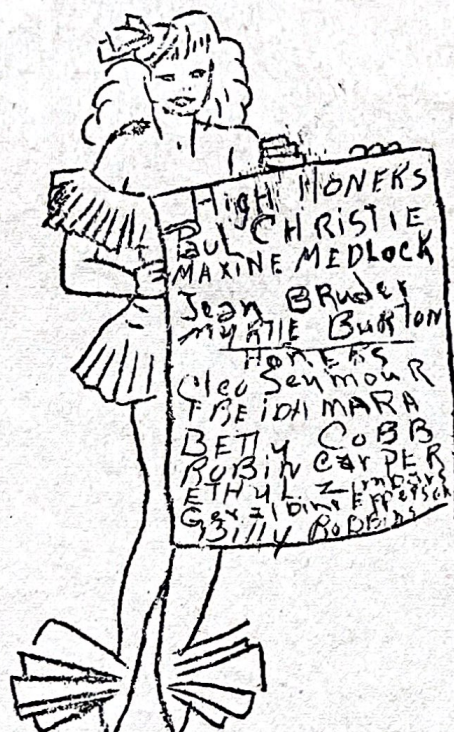 HigH HONERS
PauL CHRISTIE
MAXINE MEDLOCK
Jean BRuder
MYRTIE BURTON
HONERS
Cleo SeymouR
FREIDA MARA
BETTy COBB
RoBiN CarPER
ETHYL
Billy RoBBins